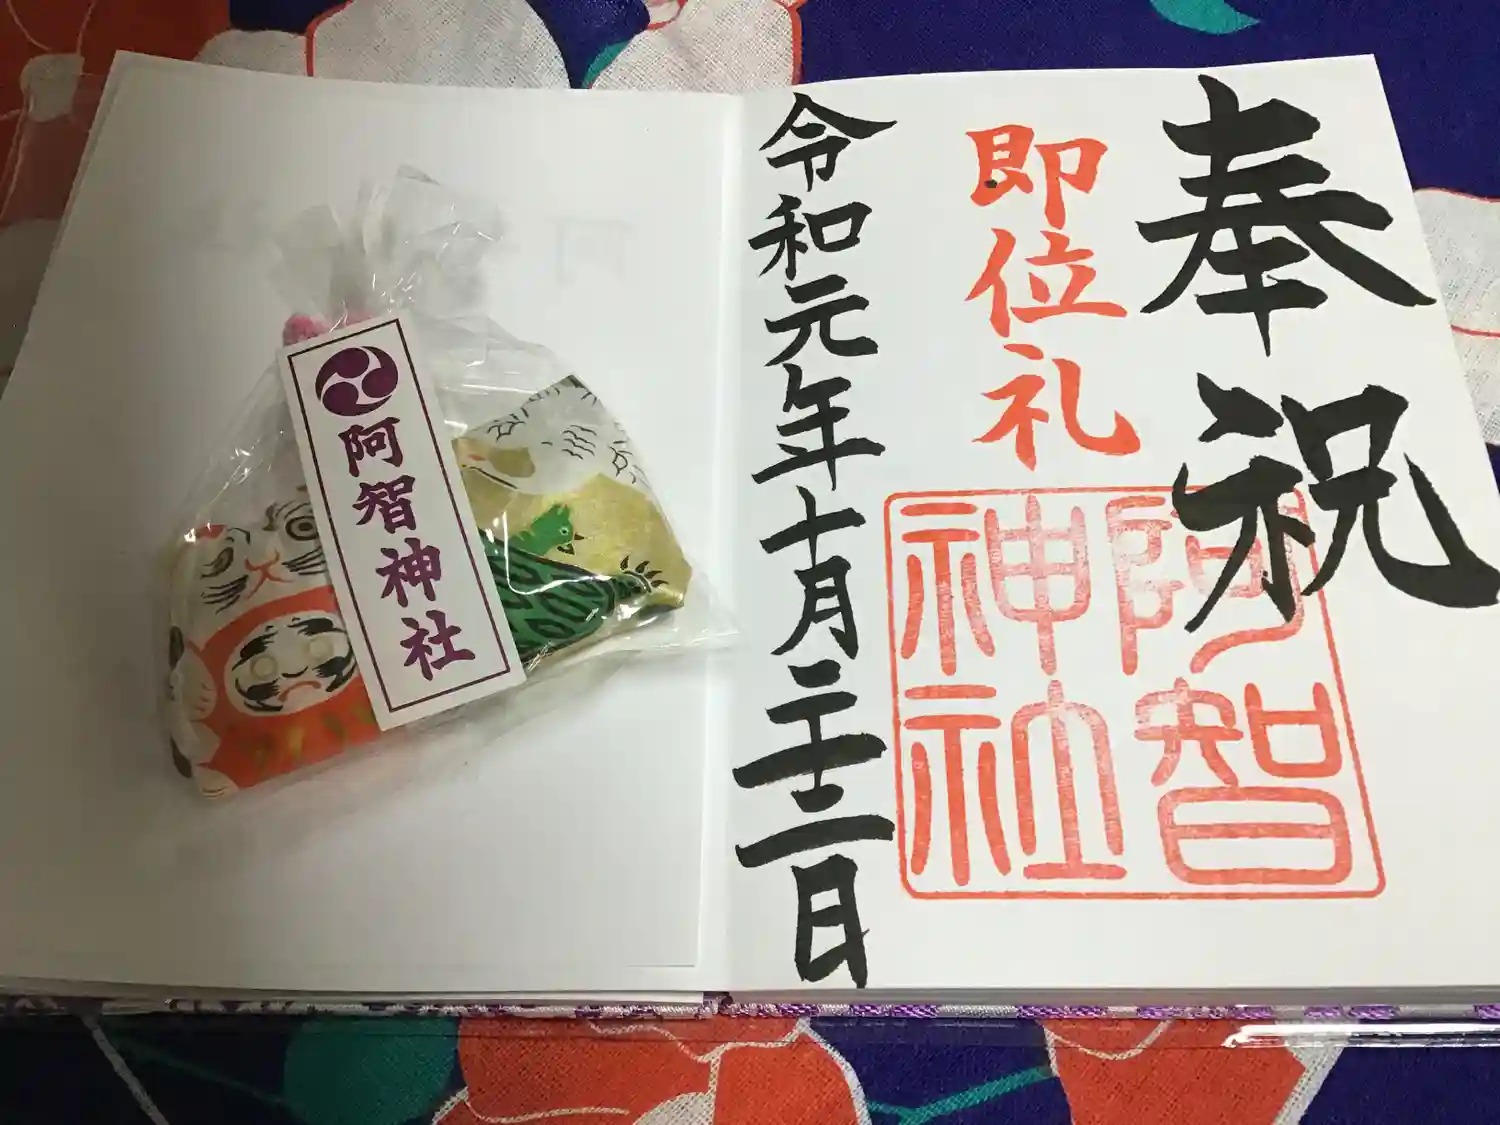 奉祝
即位礼
阿智
神社
令和元年十月二十二日
阿智神社